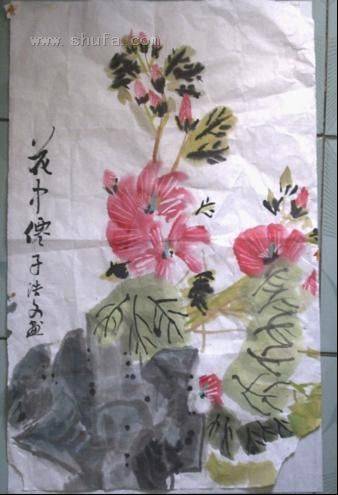 www.shufa.com
花中僊子浩文画